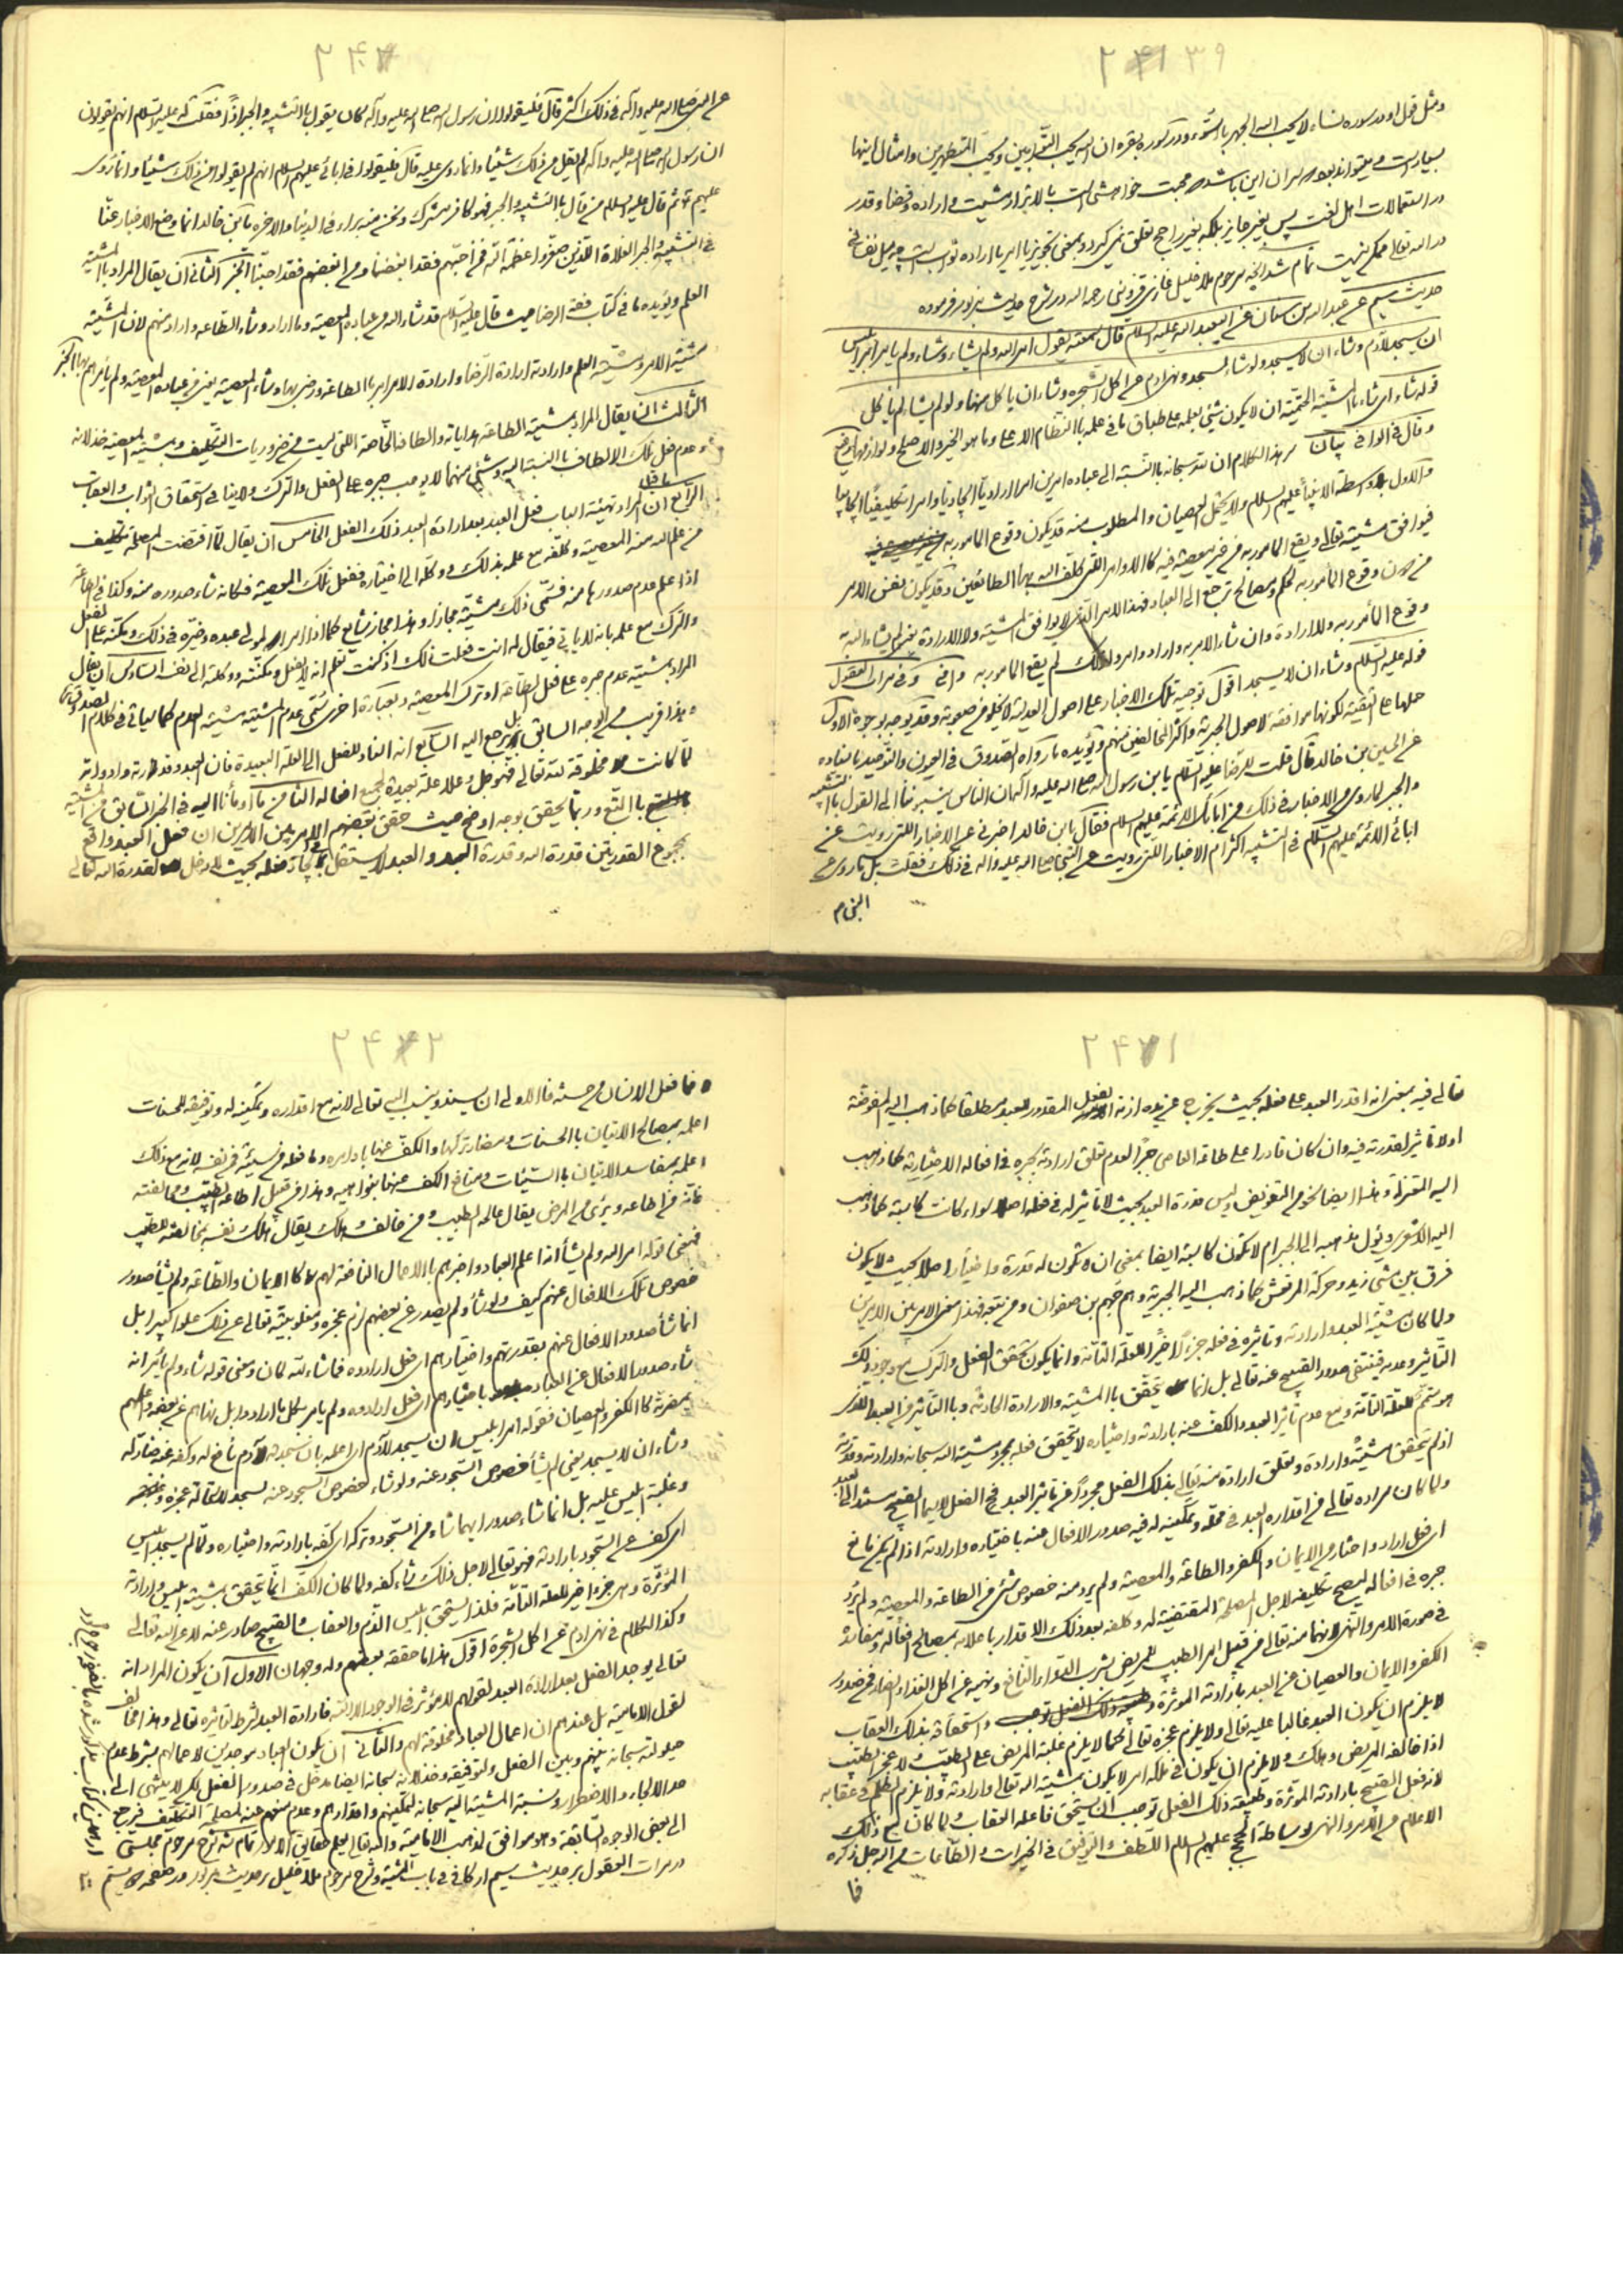 ۲۴۱ ۳۹
ومثل قول او در سوره نساء لا یحب الله الجهر بالسوء و در سوره بقره ان الله یحب التوابین و یحب المتطهرین و امثال اینها
بسیار است و میتواند بود مراد ان این باشد محبت خواهشی است بالاتر از مشیت و اراده و قضا و قدر
در استعمالات اهل لغت پس بغیر جایز بلکه بغیر راجح تعلق نمیگیرد و بمعنی تجویز یا امر یا اراده ثواب است چه میل نفسانی
در الله تعالی ممکن نیست تمام شد آنچه مرحوم ملا خلیل غازی قزوینی رحمه الله در شرح حدیث مزبور فرموده
حدیث سیم عن عبد الله بن سنان عن ابیعبد الله علیه السلام قال سمعته یقول امر الله ولم یشاء وشاء ولم یامر امر ابلیس
ان یسجد لآدم وشاء ان لا یسجد ولو شاء لسجد ونهی ادم عن اکل الشجره وشاء ان یاکل منها ولو لم یشا لم یاکل
قوله شاء ای شاء بالمشیّة الحتمیّة ان لا یکون شیئ بعلمه علی طباق ما فی علمه بالنظام الاعلی وما هو الخیر والاصلح ولوازمها
وقال فی الوافی بیان سر هذا الکلام ان لله سبحانه بالنسبة الی عباده امرین امرا ارادیّا ایجادیّا وامرا تکلیفیّا ایجابیا
والاول بلا واسطة الانبیآء علیهم السلام ولا یحتمل العصیان والمطلوب منه قد یکون وقوع المامور به
فیوافق مشیته تعالی ویقع المامور به من غیر معصیة فیه کالاوامر اللتی کلف الله بها الطائعین وقد یکون نفس الامر
من دون وقوع المأمور به لحکم ومصالح ترجع الی العباد فهذا الامر الذی لا یوافق المشیّة ولا الارادة یعنی لم یشاء الله به
وقوع المأمور به ولا اراده وان شاء الامر به واراد وامر ولذلک لم یقع المامور به وافی وفی مرات العقول
قوله علیه السلام وشاء ان لا یسجد اقول توجیه تلک الاخبار علی اصول العدلیة لا یخلو من صعوبة وقد یوجه بوجوه الاول
حملها علی التقیّة لکونها موافقة لاصول الجبریة واکثر المخالفین منهم ویؤیده ما رواه الصدوق فی العیون والتوحید باسناده
عن الحسین بن خالد قال قلت للرضا علیه السلام یا بن رسول الله صلی الله علیه وآله ان الناس ینسبوننا الی القول بالتشبیه
والجبر لما روی من الاخبار فی ذلک عن ابائک الائمة علیهم السلام فقال یا بن خالد اخبرنی عن الاخبار اللتی رویت عن
ابائی الائمّة علیهم السلام فی التشبیه اکثر ام الاخبار اللتی رویت عن النبی صلی الله علیه وآله فی ذلک فقلت بل ما روی عن
النبی م
عن النبی صلی الله علیه وآله فی ذلک اکثر قال فلیقولوا ان رسول الله صلی الله علیه وآله کان یقول بالتشبیه والجبر اذاً فقلت له علیه السلام انهم یقولون
ان رسول الله صلی الله علیه وآله لم یقل من ذلک شیئا وانما روی علیه قال فلیقولوا فی ابائی علیهم السلام انهم لم یقولوا من ذلک شیئا وانما روی
علیهم ثم قال علیه السلام من قال بالتشبیه والجبر فهو کافر مشرک ونحن منه براء فی الدنیا والاخره یا بن خالد انما وضع الاخبار عنّا
فی التشبیه والجبر الغلاة اللذین صغّروا عظمة الله فمن احبهم فقد ابغضنا ومن ابغضهم فقد احبنا الخبر الثانی ان یقال المراد بالمشیّة
العلم ویؤیده ما فی کتاب فقه الرضا حیث قال علیه السلام قد شاء الله من عباده المعصیة وما اراد وشاء الطاعه واراد منهم لان المشیّة
مشیّة الامر ومشیّة العلم وارادته ارادة الرضا وارادة الامر امر بالطاعة ورضی بها وشاء المعصیة یعنی من عباده المعصیة ولم یأمرهم بها الخبر
الثالث ان یقال المراد بمشیّة الطاعة هدایاته والطافه الخاصة اللتی لیست من ضروریات التکلیف وبمشیّة المعصیة خذلانه
وعدم فعل تلک الالطاف بالنسبة الیه وشئ منهما لا یوجب جبره علی الفعل والترک ولا ینافی استحقاق الثواب والعقاب
الرابع ان المراد تهیئة اسباب فعل العبد بعد ارادة العبد ذلک الفعل الخامس ان یقال لمّا اقتضت المصلحة تکلیف
من علم الله منه المعصیة وکلفه مع علمه بذلک ووکله الی اختیاره ففعل تلک المعصیة فکانه شاء صدوره منه وکذا فی الطاعة
اذا علم عدم صدورها منه فسمّی ذلک مشیّة مجازاً وهذا مجاز شایع کما اذا امر المولی عبده وخیّره فی ذلک ومکّنه علی الفعل
والترک مع علمه بانه لا یاتی فیقال له انت فعلت ذلک اذ کنت تعلم انه لا یفعل ومکّنته ووکلته الی نفسه السادس ان یقال
المراد بمشیته عدم جبره علی فعل الطاعة او ترک المعصیة وبعبارة اخری سُمّی عدم المشیّة مشیّة العدم کما سیاتی فی کلام الصدوق
وهذا قریب من الوجه السابق بل یرجع الیه السابع انه اسناد للفعل الی العلة البعیدة فان العبد وقدرته وادواته
لمّا کانت مخلوقة لله تعالی فهو جل وعلا علة بعیدة لجمیع افعاله الثامن ما أومأنا الیه فی الخبر السّابق من المشیّة
بالتبع وربّما یحقق بوجه اوضح حیث حقق بعضهم الامر بین الامرین ان فعل العبد واقع
بمجموع القدرتین قدرة الله وقدرة العبد والعبد لا یستقل فی ایجاد فعله بحیث لا دخل لقدرة الله تعالی
۲۴۷۱
تعالی فیه بمعنی انه اقدر العبد علی فعله بحیث یخرج عن یده ازمة الفعل المقدور للعبد مطلقا کما ذهب الیه المفوضة
او لا تاثیر لقدرته فیه وان کان قادرا علی طاعة العاصی جبرًا لعدم تعلق ارادته بجبره فی افعاله الاختیاریة کما ذهب
الیه المعتزلة وهذا ایضا نحو من التفویض ولیس قدرة العبد بحیث لا تاثیر له فی فعله اصلا سواء کانت کاسبة کما ذهب
الیه الاشعری ویؤل مذهبه الی الجبر ام لا تکون کاسبة ایضا بمعنی ان لا تکون له قدرة واختیار اصلا بحیث لا یکون
فرق بین مشی زید وحرکة المرتعش کما ذهب الیه الجبریة وهم جهم بن صفوان ومن تبعه فهذا معنی الامر بین الامرین
ولما کان مشیّة العبد وارادته وتاثیره فی فعله جزءً اخیراً للعلة التامّة وانما یکون تحقق الفعل والترک مع وجود ذلک
التاثیر وعدمه فینتفی صدور القبیح عنه تعالی بل انما یتحقق بالمشیّة والارادة الحادثه وبالتأثیر من العبد الذی
هو متمّم للعلة التامّة ومع عدم تأثیر العبد والکف عنه بارادته واختیاره لا یتحقق فعله بمجرد مشیّة الله سبحانه وارادته وقدرته
اذ لم یتحقق مشیّة وارادة وتعلق ارادة منه تعالی بذلک الفعل مجرداً عن تاثیر العبد فح الفعل لا سیما القبیح مستند الی العبد
ولما کان مراده تعالی من اقداره العبد فی فعله وتمکینه له فیه صدور الافعال عنه باختیاره وارادته اذا لم یکن مانع
ای فعل اراد واختار من الایمان والکفر والطاعة والمعصیة ولم یرد منه خصوص شئ من الطاعة والمعصیة ولم یُرِد
جبره فی افعاله لیصح تکلیفه لاجل المصلحة المقتضیة له وکلفه بعد ذلک الاقدار باعلامه بمصالح افعاله ومفاسده
فی صورة الامر والنهی لانهما منه تعالی من قبیل امر الطبیب للمریض بشرب الدّواء النّافع ونهیه عن اکل الغذاء الضار فمن صدور
الکفر والایمان والعصیان عن العبد بارادته الموثّرة واستحقاقه بذلک العقاب
لا یلزم ان یکون العبد غالبا علیه تعالی ولا یلزم عجزه تعالی کما لا یلزم غلبة المریض علی الطبیب ولا عجز الطبیب
اذا خالفه المریض وهلک ولا یلزم ان یکون فی ملکه امر لا یکون بمشیّة الله تعالی وارادته ولا یلزم الظلم فی عقابه
لانه فعل القبیح بارادته الموثرة وطبیعة ذلک الفعل توجب ان یستحق فاعله العقاب ولما کان مع ذلک
الاعلام من الامر والنهی بوساطة الحجج علیهم السلام اللطف والتوفیق فی الخیرات والطاعات من الله جل ذکره
فا
۲۴۴۲
فما فعل الانسان من حسنة فالاولی ان یسند وینسب الیه تعالی لانه مع اقداره وتمکینه له وتوفیقه للحسنات
اعلمه بمصالح الاتیان بالحسنات ومضار ترکها والکفّ عنها باوامره وما فعله من سیئة فمن نفسه لانه مع ذلک
اعلمه بمفاسد الاتیان بالسیّئات ومنافع الکف عنها بنواهیه وهذا من قبیل اطاعة الطبیب ومخالفته
فانه من اطاعه وبرئ من المرض یقال عالجه الطبیب ومن خالف وهلک یقال اهلک نفسه بمخالفته للطبیب
فمعنی قوله امر الله ولم یشأ انه اعلم العباد واخبرهم بالاعمال النافعة لهم کالایمان والطّاعة ولم یشأ صدور
خصوص تلک الافعال عنهم کیف ولو شاء ولم یصدر عن بعضهم لزم عجزه ومغلوبیته تعالی عن ذلک علوا کبیرا بل
انما شأ صدور الافعال عنهم بقدرتهم واختیارهم ای فعل ارادوه فما شاء الله کان ومعنی قوله شاء ولم یأمر انه
شاء صدور الافعال عن العباد باختیارهم ای فعل ارادوه ولم یامر بکل ما ارادوا بل نهاهم عن بعضه واعلمهم
بمضرته کالکفر والعصیان فقوله امر ابلیس ان یسجد لآدم ای اعلمه بان سجدة لآدم نافع له وکفه عنه ضار له
وشاء ان لا یسجد یعنی لم یشأ خصوص السّجود عنه ولو شاء خصوص السّجود عنه لسجد لاستحالة عجزه
وغلبة ابلیس علیه بل انما شاء صدور ایهما شاء من السّجود وترکه ای کفه بارادته واختیاره ولمّا لم یسجد ابلیس
ای کف عن السّجود بارادته فهو تعالی لاجل ذلک شاء کفه ولما کان الکفّ انّما یتحقق بمشیّة ابلیس وارادته
المؤثّرة وهی جزء اخیر للعلة التامّة فلذا یستحق ابلیس الذّم والعقاب والقبیح صادر عنه لا عن الله تعالی
وکذا الکلام فی نهی ادم عن اکل الشجرة اقول هذا ما حققه بعضهم وله وجهان الاول ان یکون المراد انه
تعالی یوجد الفعل بعد ارادة العبد لقولهم لا مؤثر فی الوجود الا الله فارادة العبد شرط لتاثیره تعالی وهذا مخالف
لقول الامامیة بل عندهم ان اعمال العباد مخلوقة لهم والثّانی ان یکون العباد موجدین لاعمالهم بشرط عدم
حیلولته سبحانه بینهم وبین الفعل ولتوفیقه وخذلانه سبحانه ایضا مدخل فی صدور الفعل لکن لا ینتهی الی
حد الالجاء والاضطرار ونسبة المشیّة الیه سبحانه لتمکینهم واقدارهم وعدم منعهم عنه لمصلحة التکلیف فیرجع
الی بعض الوجوه السّابقة وهو موافق لمذهب الامامیّة والله تعالی یعلم حقایق الامور تمام شد شرح مرحوم مجلسی
در مرات العقول بر حدیث سیم از کافی در باب المشیّة وشرح مرحوم ملا خلیل بر حدیث مزبور در صفحه بیستم